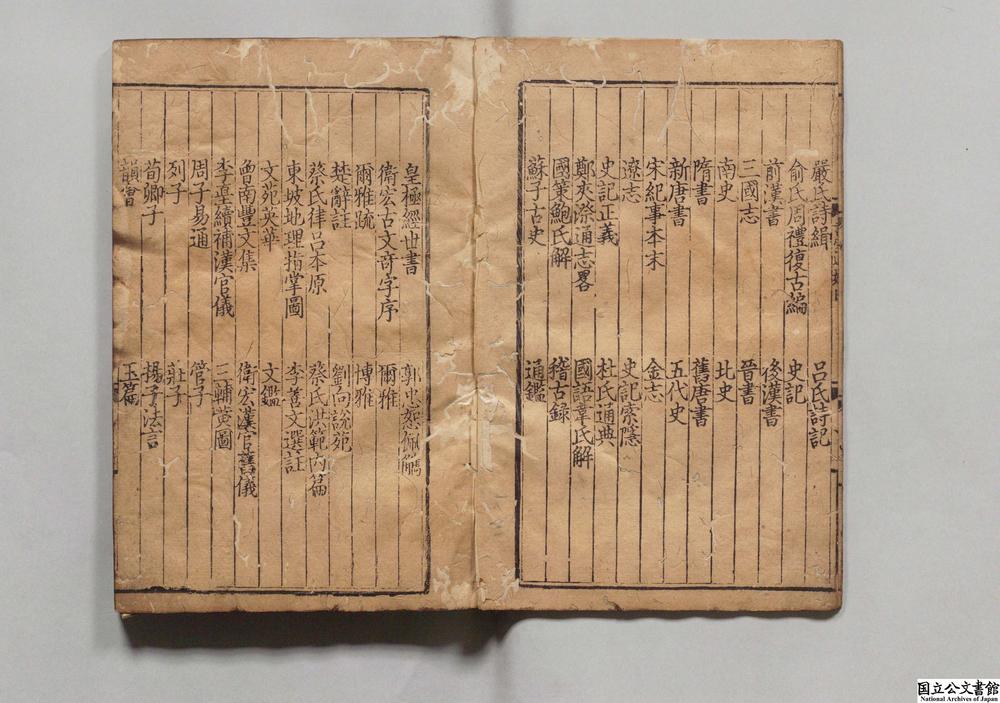 嚴氏詩緝 呂氏詩記
俞氏周禮復古編
前漢書 史記
三國志 後漢書
南史 晉書
隋書 北史
新唐書 舊唐書
宋紀事本末 五代史
遼志 金志
史記正義 史記索隱
鄭夾漈通志畧 杜氏通典
國策鮑氏解 國語韋氏解
蘇子古史 稽古録
通鑑
皇極經世書 郭忠恕佩觿
衛宏古文奇字序
爾雅疏 爾雅
楚辭註 博雅
蔡氏律呂本原 劉向說苑
東坡地理指掌圖 蔡氏洪範内篇
文苑英華 李善文選註
曾南豐文集 文鑑
李臯續補漢官儀 衛宏漢官舊儀
周子易通 三輔黄圖
列子 管子
荀卿子 莊子
韻會 揚子法言
玉篇
国立公文書館
National Archives of Japan